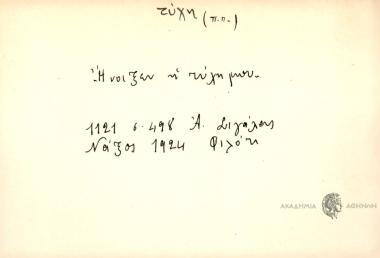 τύχη (π.π.)
Ἤνοιξεν ἡ τύχη μου.
1121 σ. 498 Ἀ. Σιγάλας
Νάξος 1924 Φιλότι
ΑΚΑΔΗΜΙΑ ΑΘΗΝΩΝ